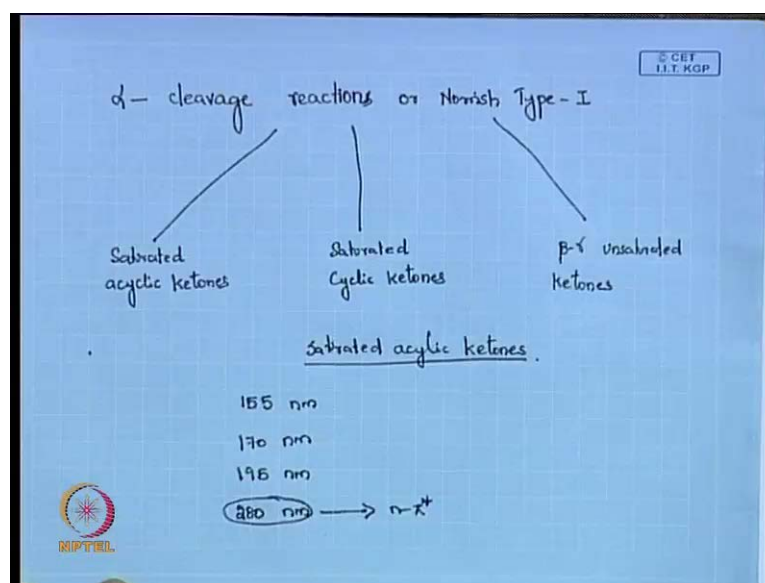 © CET
I.I.T. KGP
α – cleavage reactions or Norrish Type - I
Saturated
acyclic ketones
Saturated
Cyclic ketones
β-γ unsaturated
ketones
Saturated acylic ketones.
155 nm
170 nm
195 nm
280 nm → n-π*
NPTEL